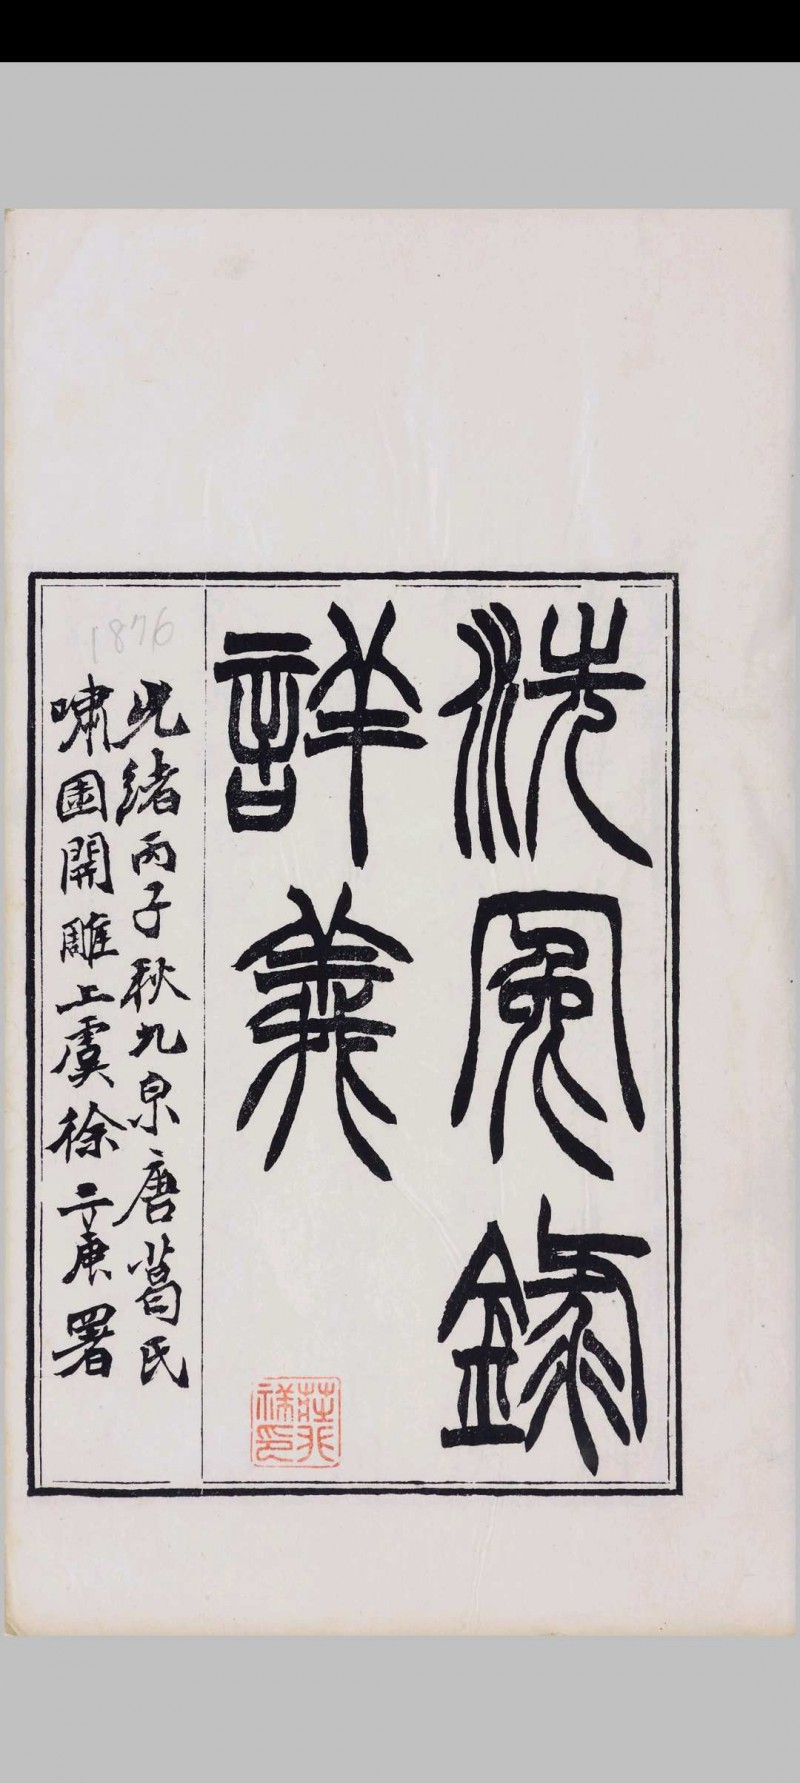 洗冤錄
詳義
1876
光緒丙子秋九泉唐葛氏
嘯園開雕上虞徐三庚署
莊兆祥印